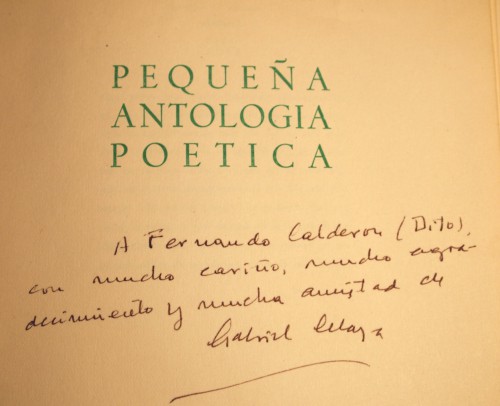 PEQUEÑA
ANTOLOGIA
POETICA
A Fernando Calderon (Dito),
con mucho cariño, mucho agra-
decimiento y mucha amistad de
Gabriel Celaya